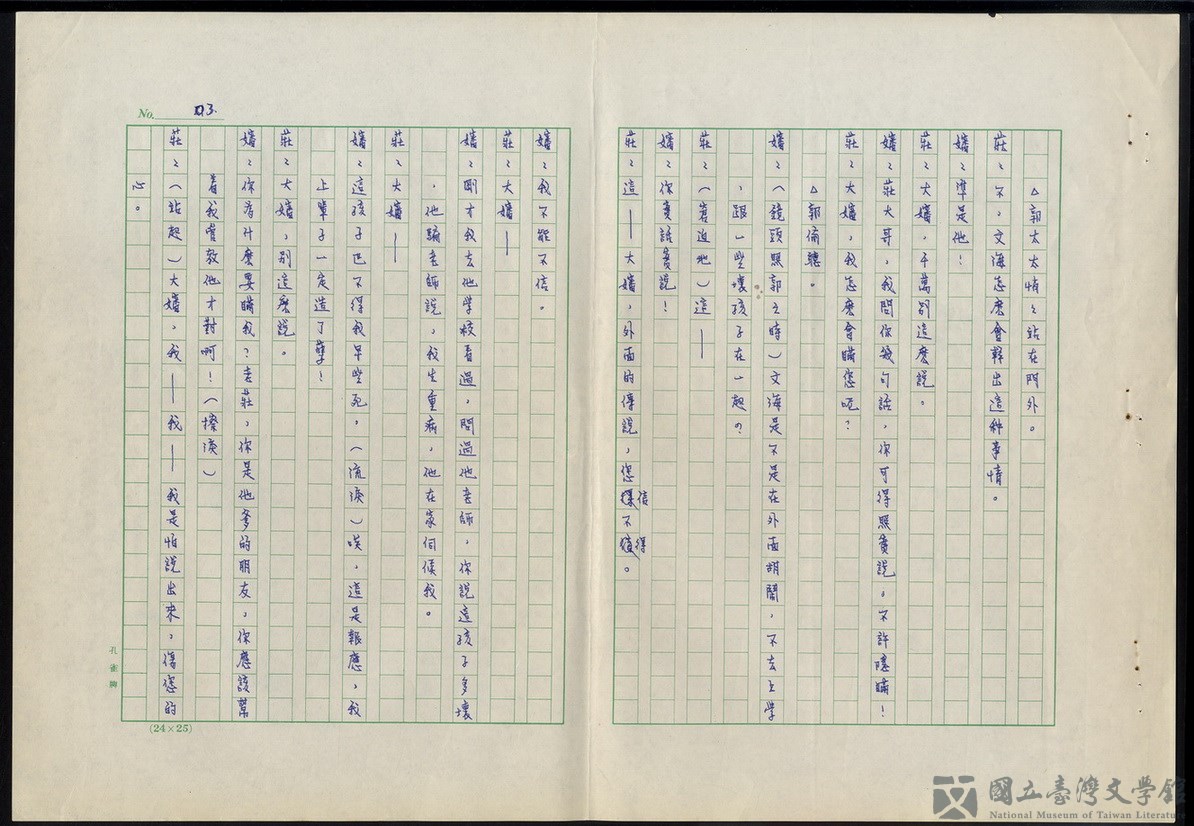 △郭太太悄々站在門外。
莊：不，文海怎麼會幹出這種事情。
嬸：準是他！
莊：大嬸，千萬別這麼說。
嬸：莊大哥，我問你幾句話，你可得照實說，不許隱瞞！
莊：大嬸，我怎麼會瞞您呢？
△郭偷聽。
嬸：（鏡頭照郭之時）文海是不是在外面胡鬧，不去上學
，跟一些壞孩子在一起？
莊：（窘迫地）這——
嬸：你實話實說！
莊：這——大嬸，外面的傳說，您信不得。
嬸：我不能不信。
莊：大嬸——
嬸：剛才我去他學校看過，問過他老師，你說這孩子多壞
，他騙老師說，我生重病，他在家伺候我。
莊：大嬸——
嬸：這孩子巴不得我早些死，（流淚）唉，這是報應，我
上輩子一定造了孽！
莊：大嬸，別這麼說。
嬸：你為什麼要瞞我？老莊，你是他爹的朋友，你應該幫
著我管教他才對啊！（擦淚）
莊：（站起）大嬸，我——我——我是怕說出來，傷您的
心。
No. 03.
孔雀牌
(24×25)
國立臺灣文學館
National Museum of Taiwan Literature